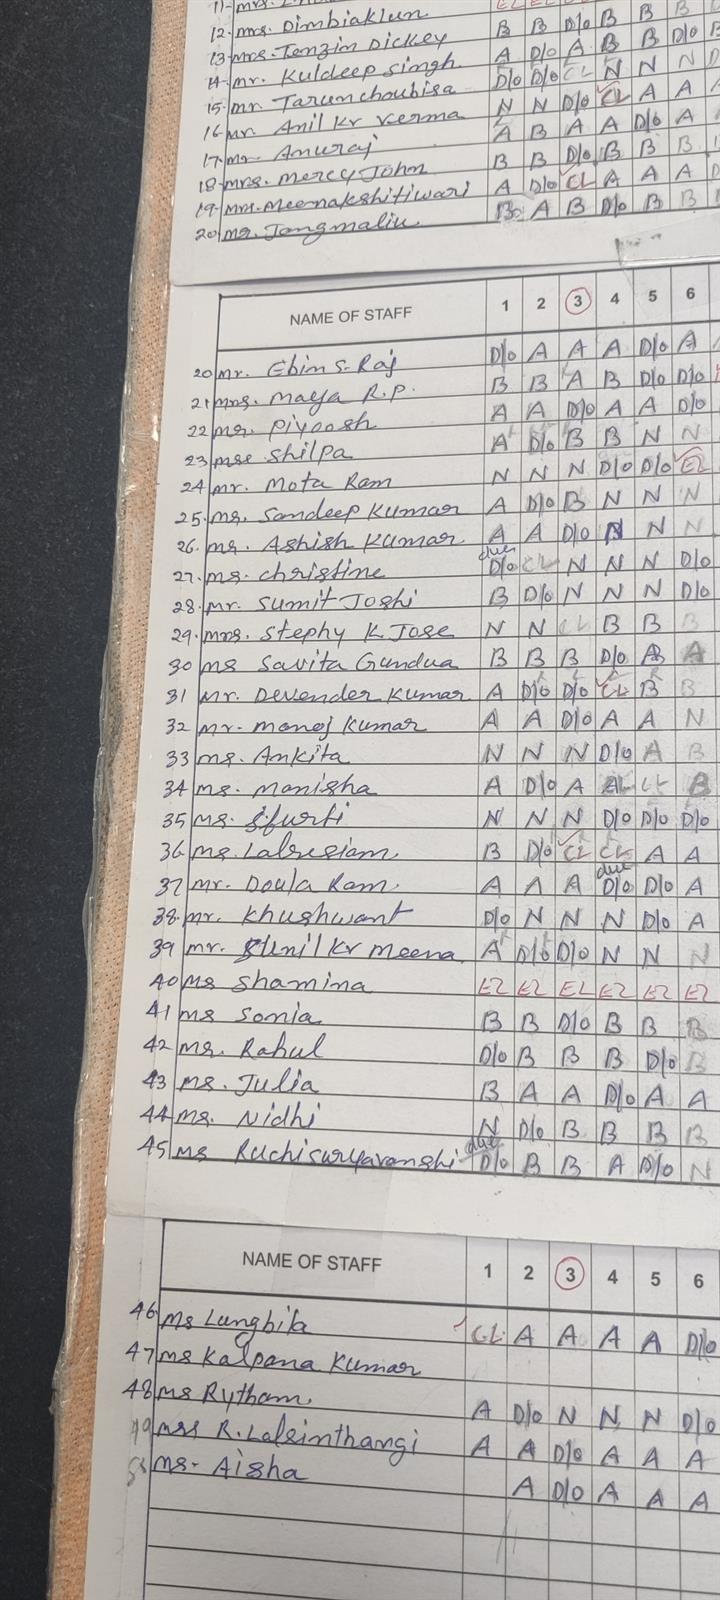 12. mrs. Dimbiaklun B B D/o B B B
13. mrs. Tenzin Dickey A D/o A B B D/o
14. mr. Kuldeep Singh D/o D/o CL N N N
15. mr. Tarun choubisa N N D/o CL A A
16. mr. Anil Kr Verma A B A A D/o A
17. mr. Anuraj B B D/o B B B
18. mrs. Mercy John A D/o CL A A A
19. mrs. Meenakshi tiwari B A B D/o B B
20 mr. Jangmaliu
NAME OF STAFF 1 2 3 4 5 6
20 mr. Ebin S. Raj D/o A A A D/o A
21 mrs. Maya R.p. B B A B D/o D/o
22 mr. Piyoosh A A D/o A A D/o
23 Shilpa A D/o B B N N
24 mr. Mota Ram N N N D/o D/o EL
25. mr. Sandeep Kumar A D/o B N N N
26. mr. Ashish Kumar A A D/o N N N
27. ms. christine due D/o CL N N N D/o
28. mr. Sumit Joshi B D/o N N N D/o
29. mrs. Stephy K Jose N N CL B B B
30 ms Savita Gundua B B B D/o A A
31 mr. Devender Kumar A D/o D/o CL B B
32 mr. manoj Kumar A A D/o A A N
33 ms. Ankita N N N D/o A B
34 ms. Manisha A D/o A CL B
35 ms. Sfurti N N N D/o D/o D/o
36 ms. Lalrusiam B D/o CL CL A A
37 mr. Doula Ram A A A due D/o D/o A
38. mr. Khushwant D/o N N N D/o A
39 mr. Sunil Kr Meena A D/o D/o N N N
40 ms Shamina EL EL EL EL EL EL
41 ms Sonia B B D/o B B B
42 mr. Rahul D/o B B B D/o B
43 ms. Julia B A A D/o A A
44 ms. Nidhi N D/o B B B B
45 ms Ruchi suryavanshi due D/o B B A D/o N
NAME OF STAFF 1 2 3 4 5 6
46 ms Lungbila CL A A A A D/o
47 ms Kalpana Kumar
48 ms Rytham A D/o N N N D/o
49 mrs R. Lalsinthangi A A D/o A A A
ms. Aisha A D/o A A A